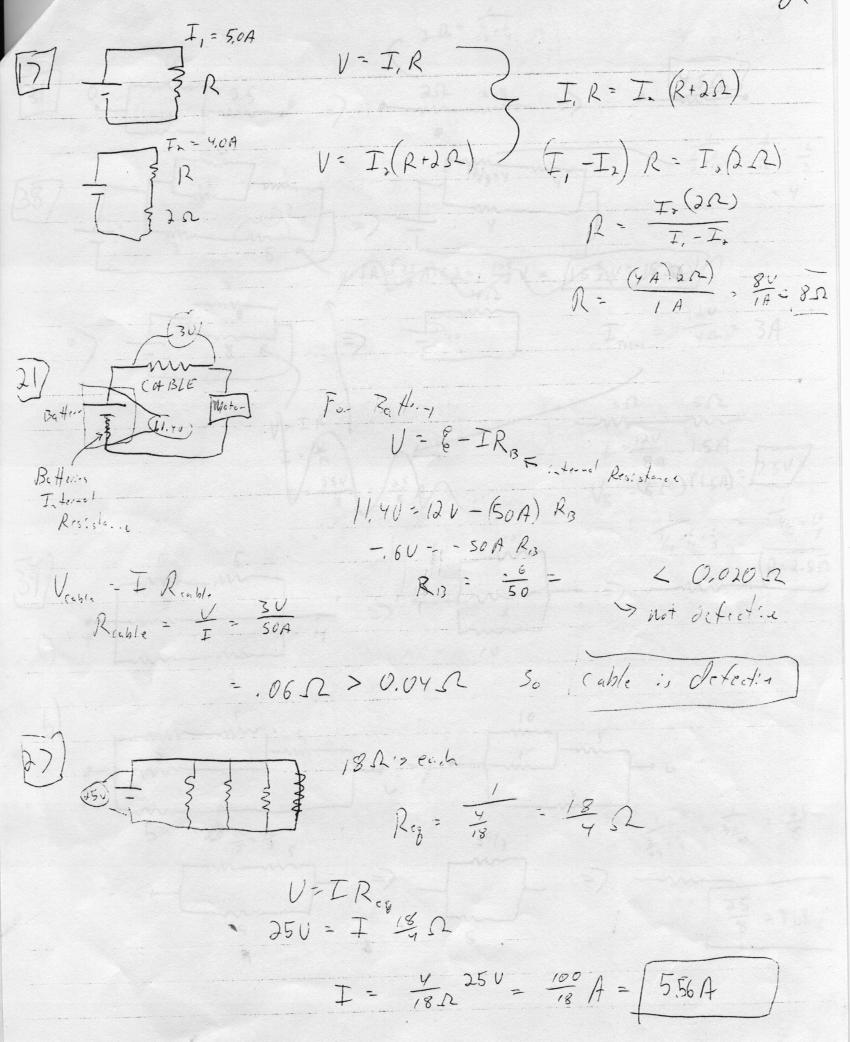 17
I₁ = 5.0A
R
V = I₁R
I₁R = I₂(R+2Ω)
I₂ = 4.0A
R
2Ω
V = I₂(R+2Ω)
(I₁ - I₂) R = I₂(2Ω)
R = I₂(2Ω) / I₁ - I₂
R = (4A)(2Ω) / 1A = 8V / 1A = 8Ω
21
3V
CABLE
Battery
11.4V
Motor
Batteries
Internal
Resistance
For Battery
V = ξ - IR_B
internal Resistance
11.4V = 12V - (50A) R_B
-.6V = -50A R_B
R_B = .6 / 50 = < 0.020Ω
→ not defective
V_cable = I R_cable
R_cable = V / I = 3V / 50A
= .06Ω > 0.04Ω so cable is defective
27
25V
18Ω's each
R_eq = 1 / 4/18 = 18/4 Ω
V = I R_eq
25V = I 18/4 Ω
I = 4/18Ω 25V = 100/18 A = 5.56A